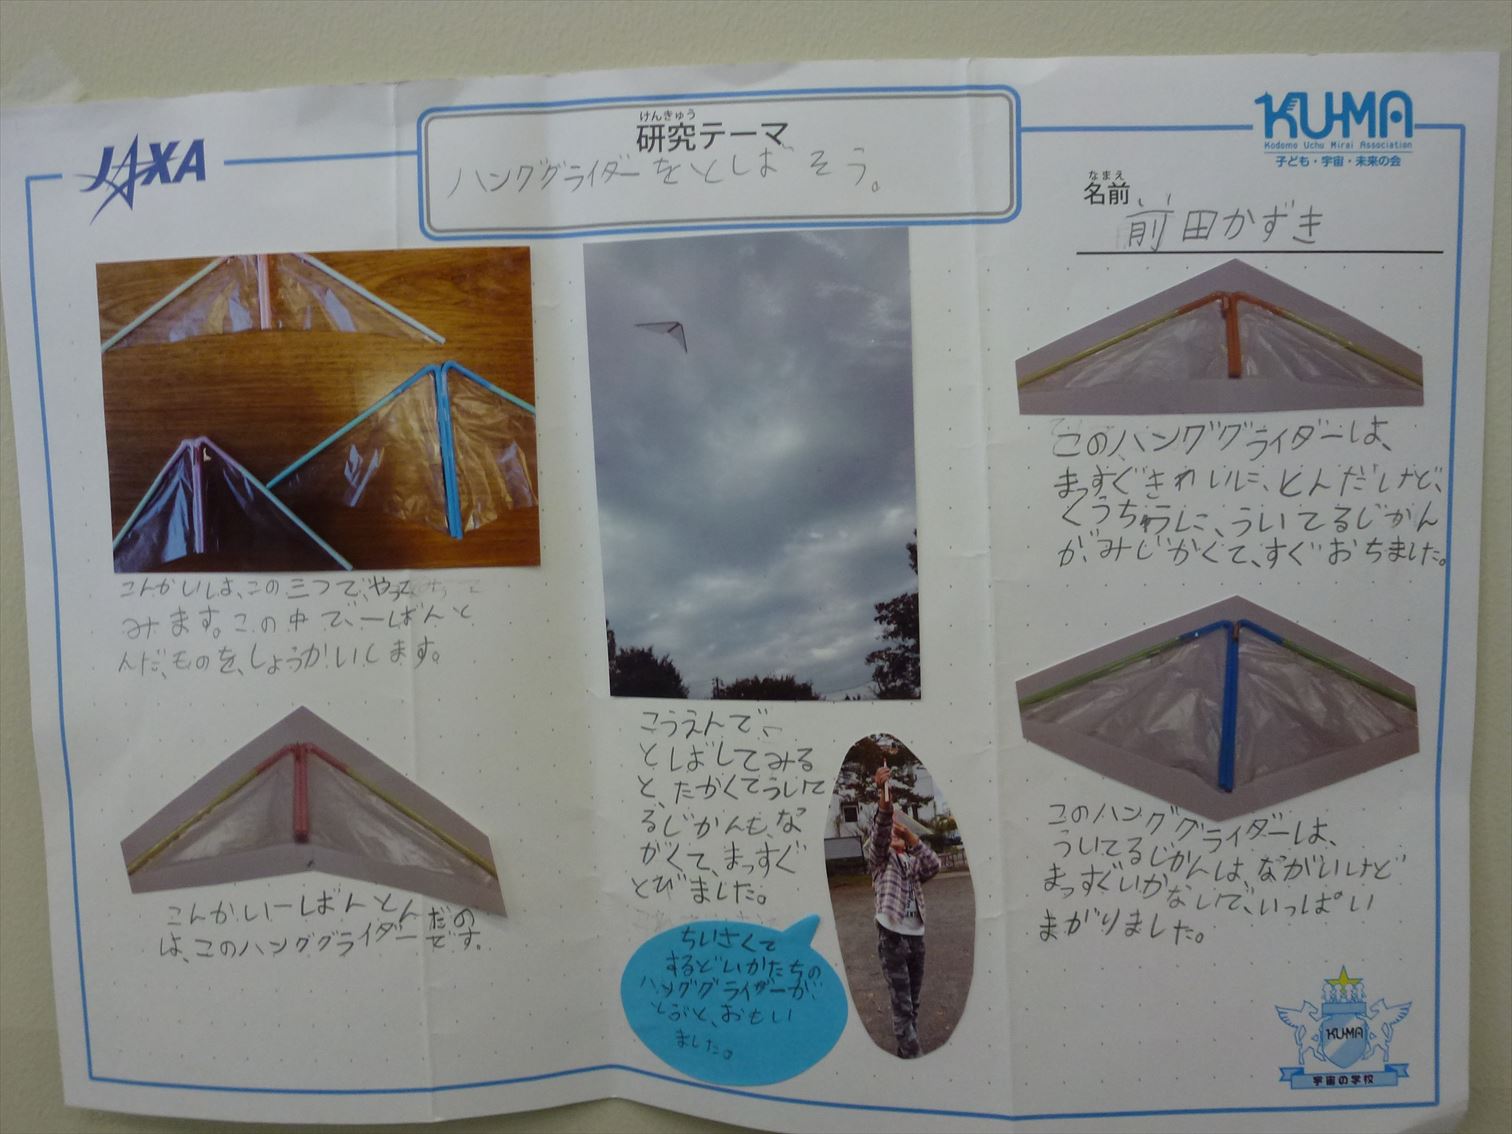 JAXA
けんきゅう
研究テーマ
ハンググライダーをとしばそう。
KU-MA
Kodomo Uchu Mirai Association
子ども・宇宙・未来の会
なまえ
名前
前田かずき
こんかいは、この三つで、やって
みます。この中で、一ばんと
んだ、ものを、しょうかいします。
こんかい一ばんとんだの
は、このハンググライダーです。
こうえんで、
としばしてみる
と、たかくてういて
るじかんも、な
がくて、まっすぐ
とびました。
ちいさくて
するどいかたちの
ハンググライダーが、
とぶと、おもい
ました。
このハンググライダーは、
まっすぐきれいに、とんだけど、
くうちゅうに、ういてるじかん
が、みじかくて、すぐおちました。
このハンググライダーは、
ういてるじかんは、ながいけど
まっすぐいかないで、いっぱい
まがりました。
KU-MA
宇宙の学校